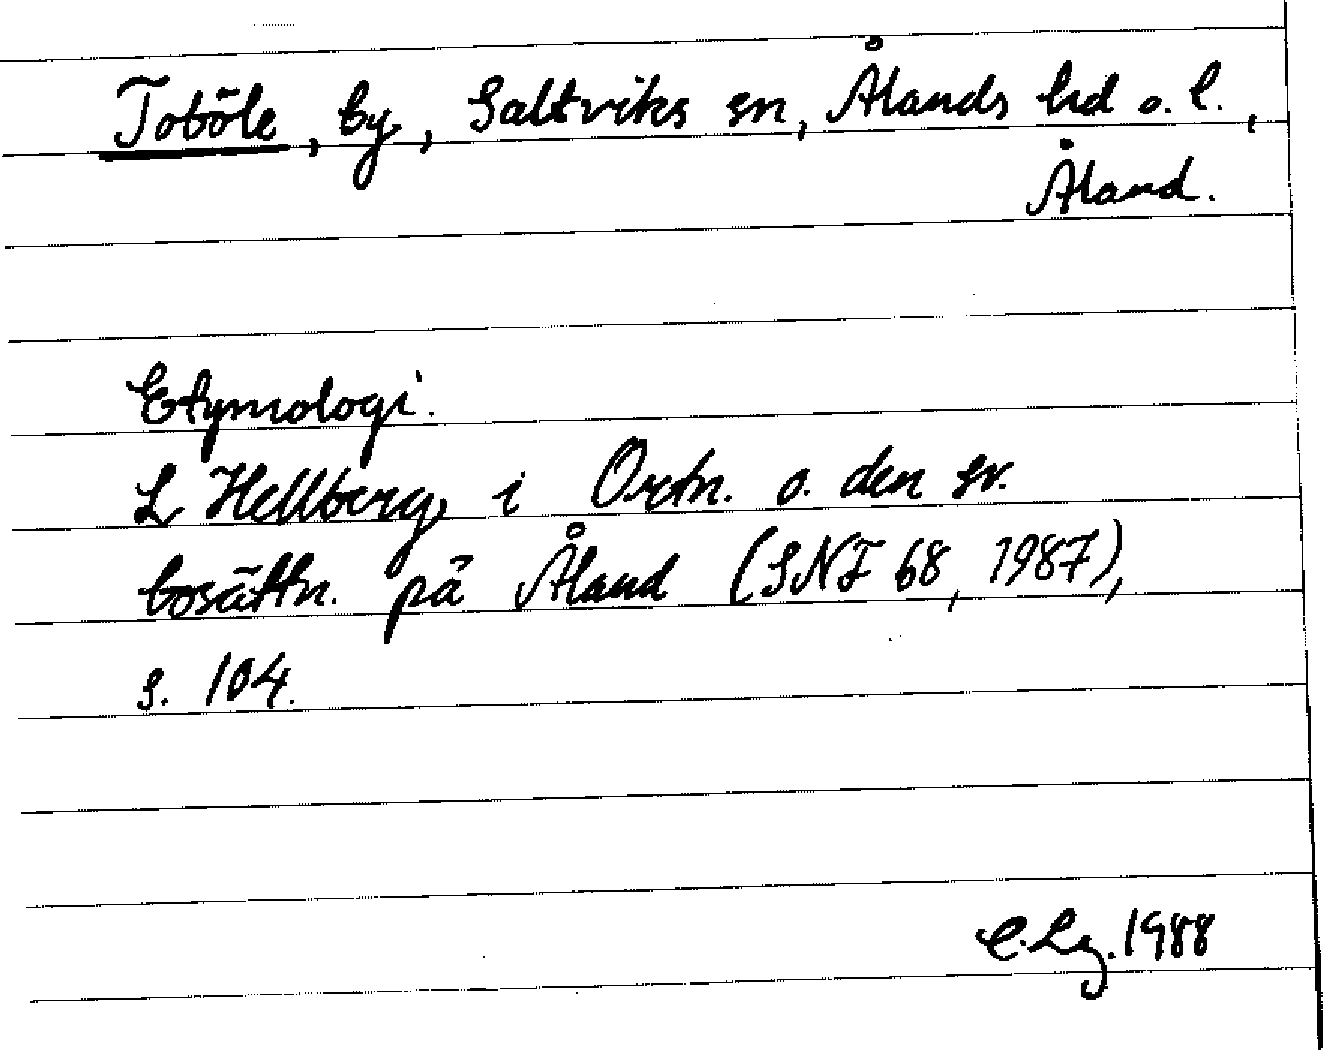 Toböle, by, Saltviks sn, Ålands hd o. l.,
Åland.
Etymologi.
L Hellberg, i Ortn. o. den sv.
bosättn. på Åland (SNF 68, 1987),
s. 104.
C. Lg. 1988